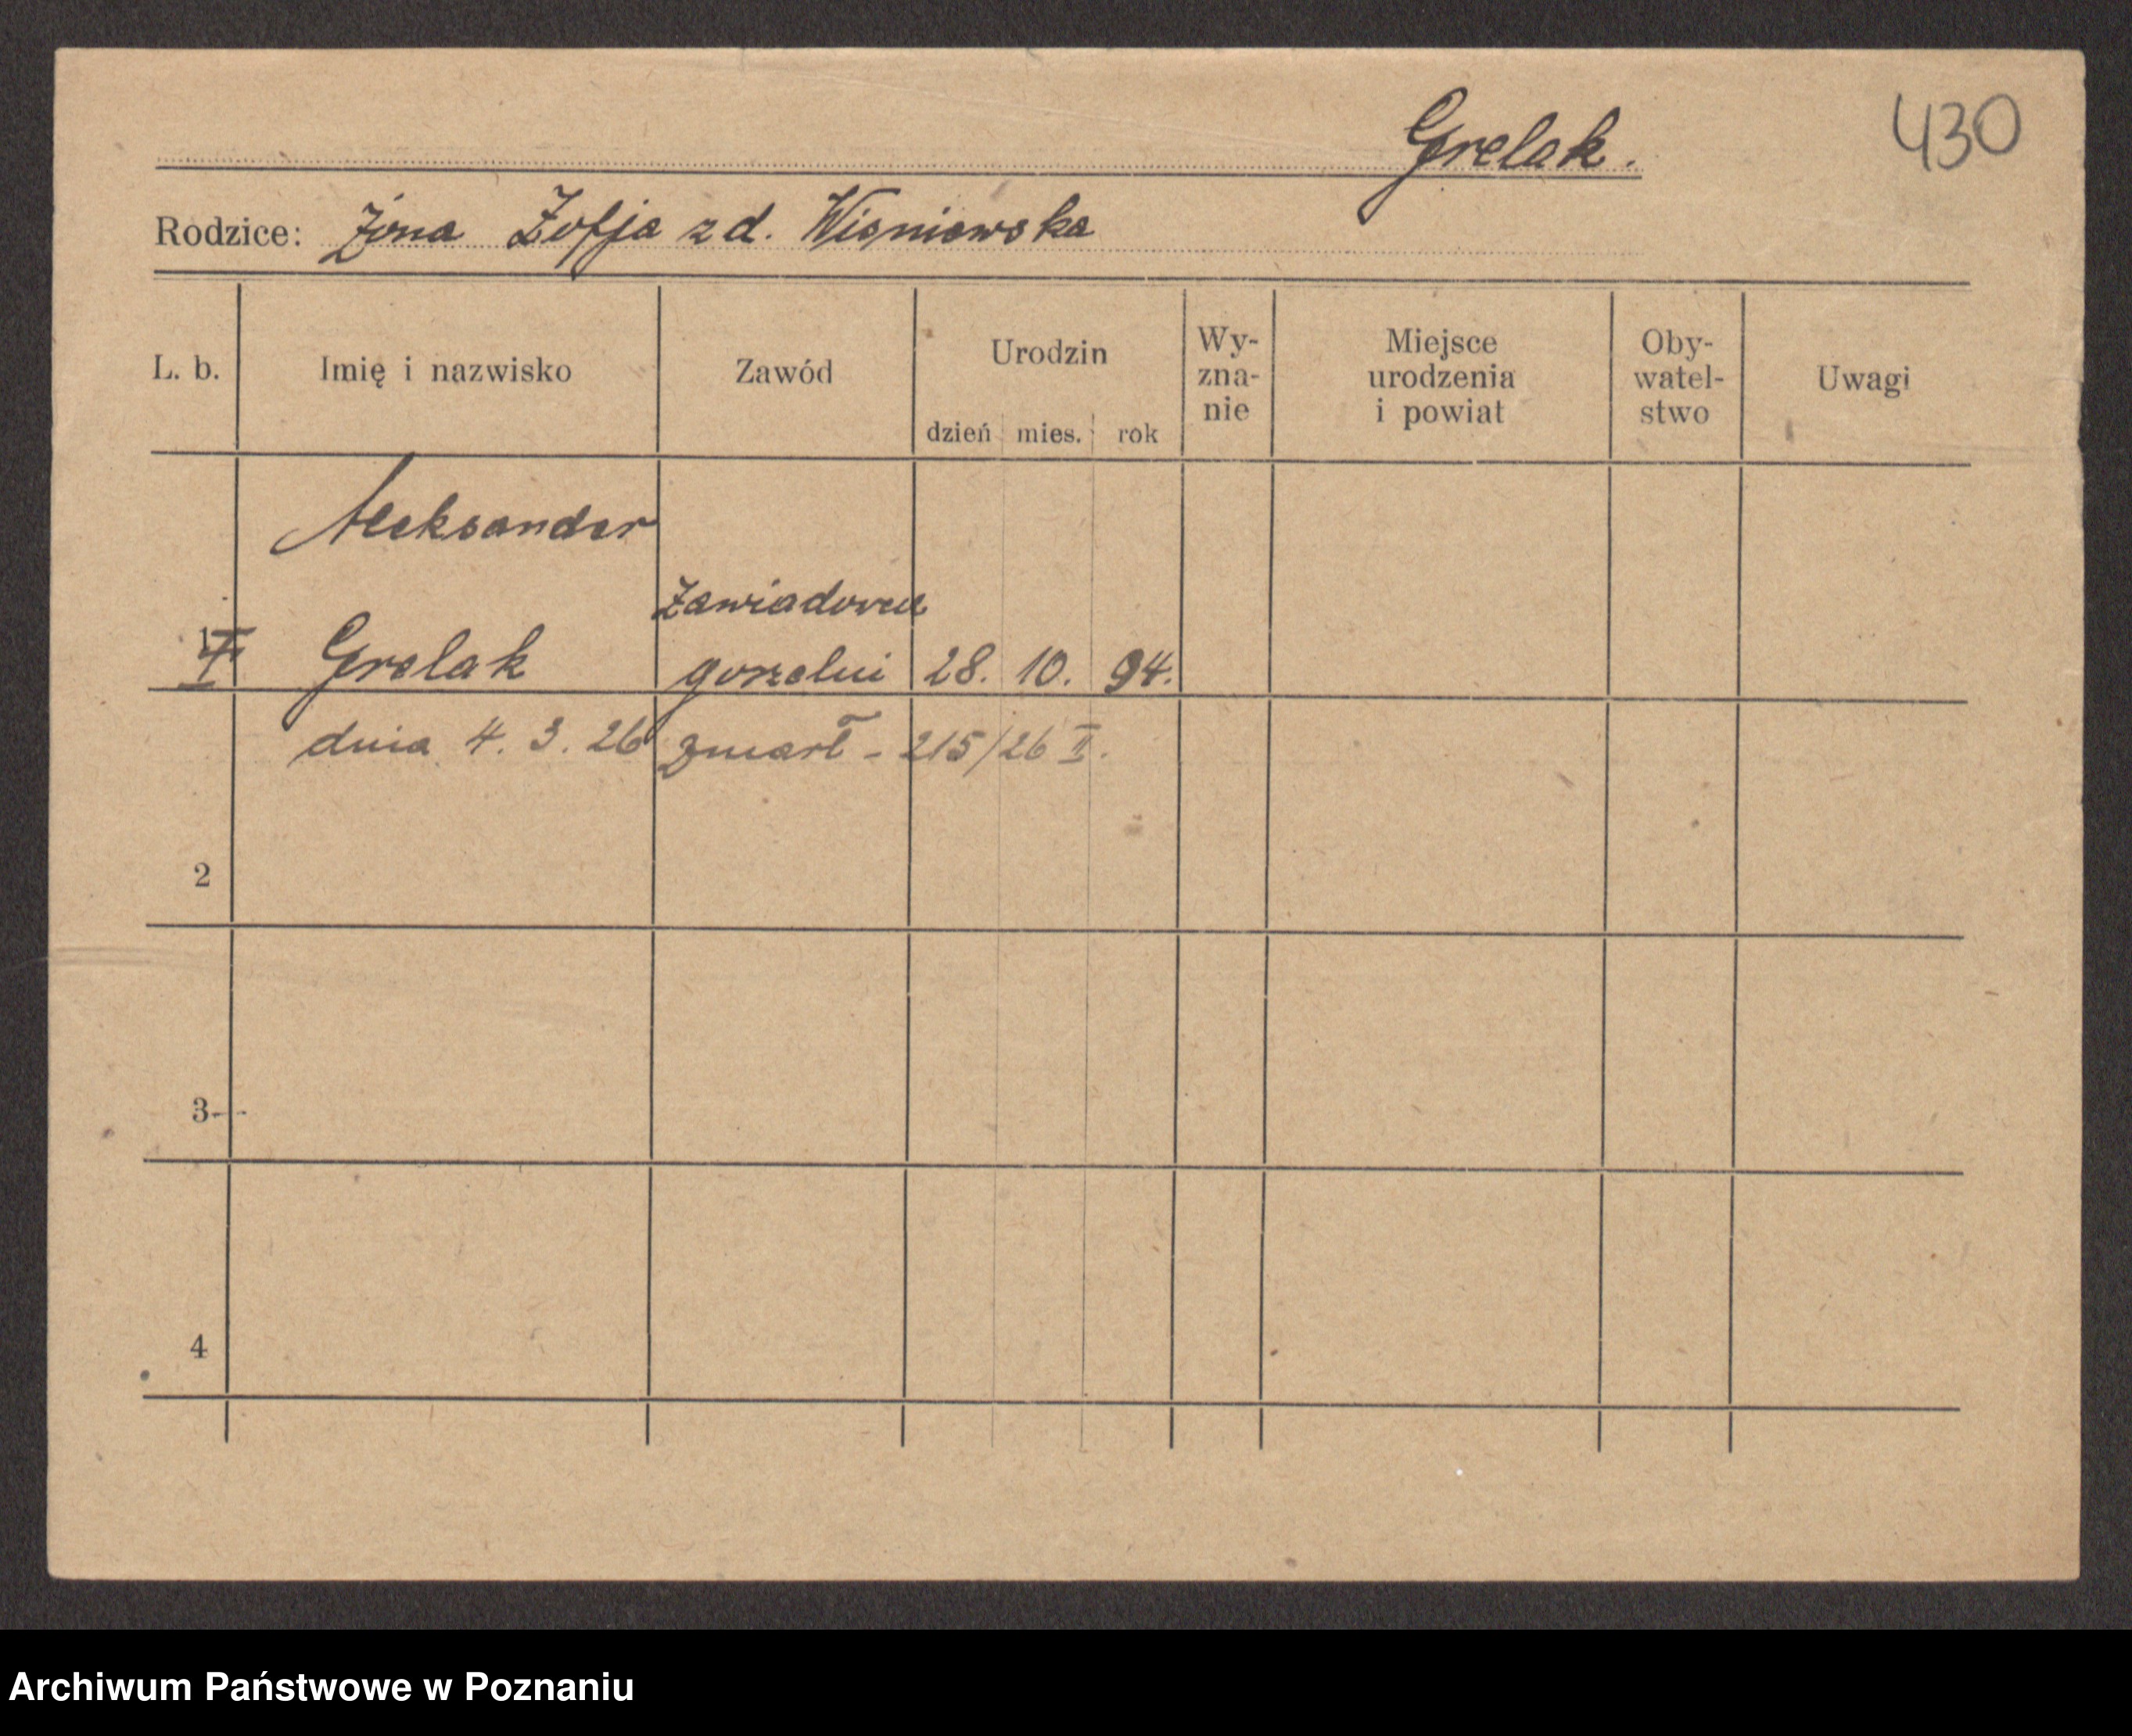 430
Grelak.
Rodzice: Żona Zofja z d. Wiśniewska
L. b. Imię i nazwisko Zawód Urodzin dzień mies. rok Wy-zna-nie Miejsce urodzenia i powiat Oby-watel-stwo Uwagi
Aleksander
Zawiadowca
1 Grelak gorzelni 28. 10. 94.
dnia 4. 3. 26 zmarł - 215/26 II.
2
3
4
Archiwum Państwowe w Poznaniu